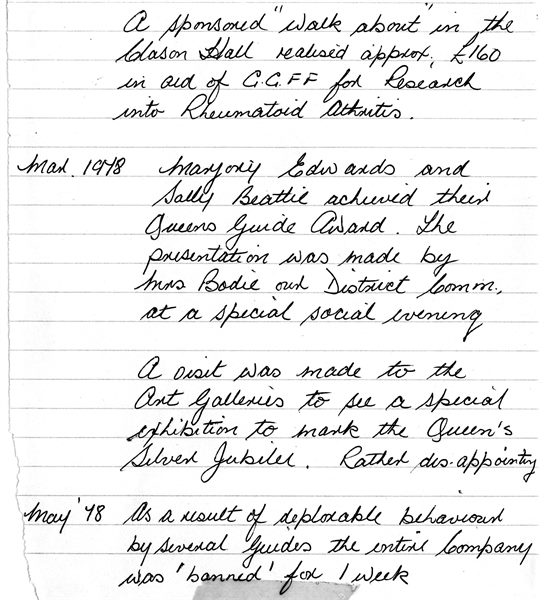 A sponsored "walk about" in the
Clason Hall realised approx. £160
in aid of G.G.F.F for Research
into Rheumatoid Athritis.
Mar. 1978 Marjory Edwards and
Sally Beattie achieved their
Queens Guide Award. The
presentation was made by
Mrs Bodie our District Comm.,
at a special social evening
A visit was made to the
Art Galleries to see a special
exhibition to mark the Queen's
Silver Jubilee. Rather dis-appointing
May '78 As a result of deplorable behaviour
by several Guides the entire Company
was 'banned' for 1 week